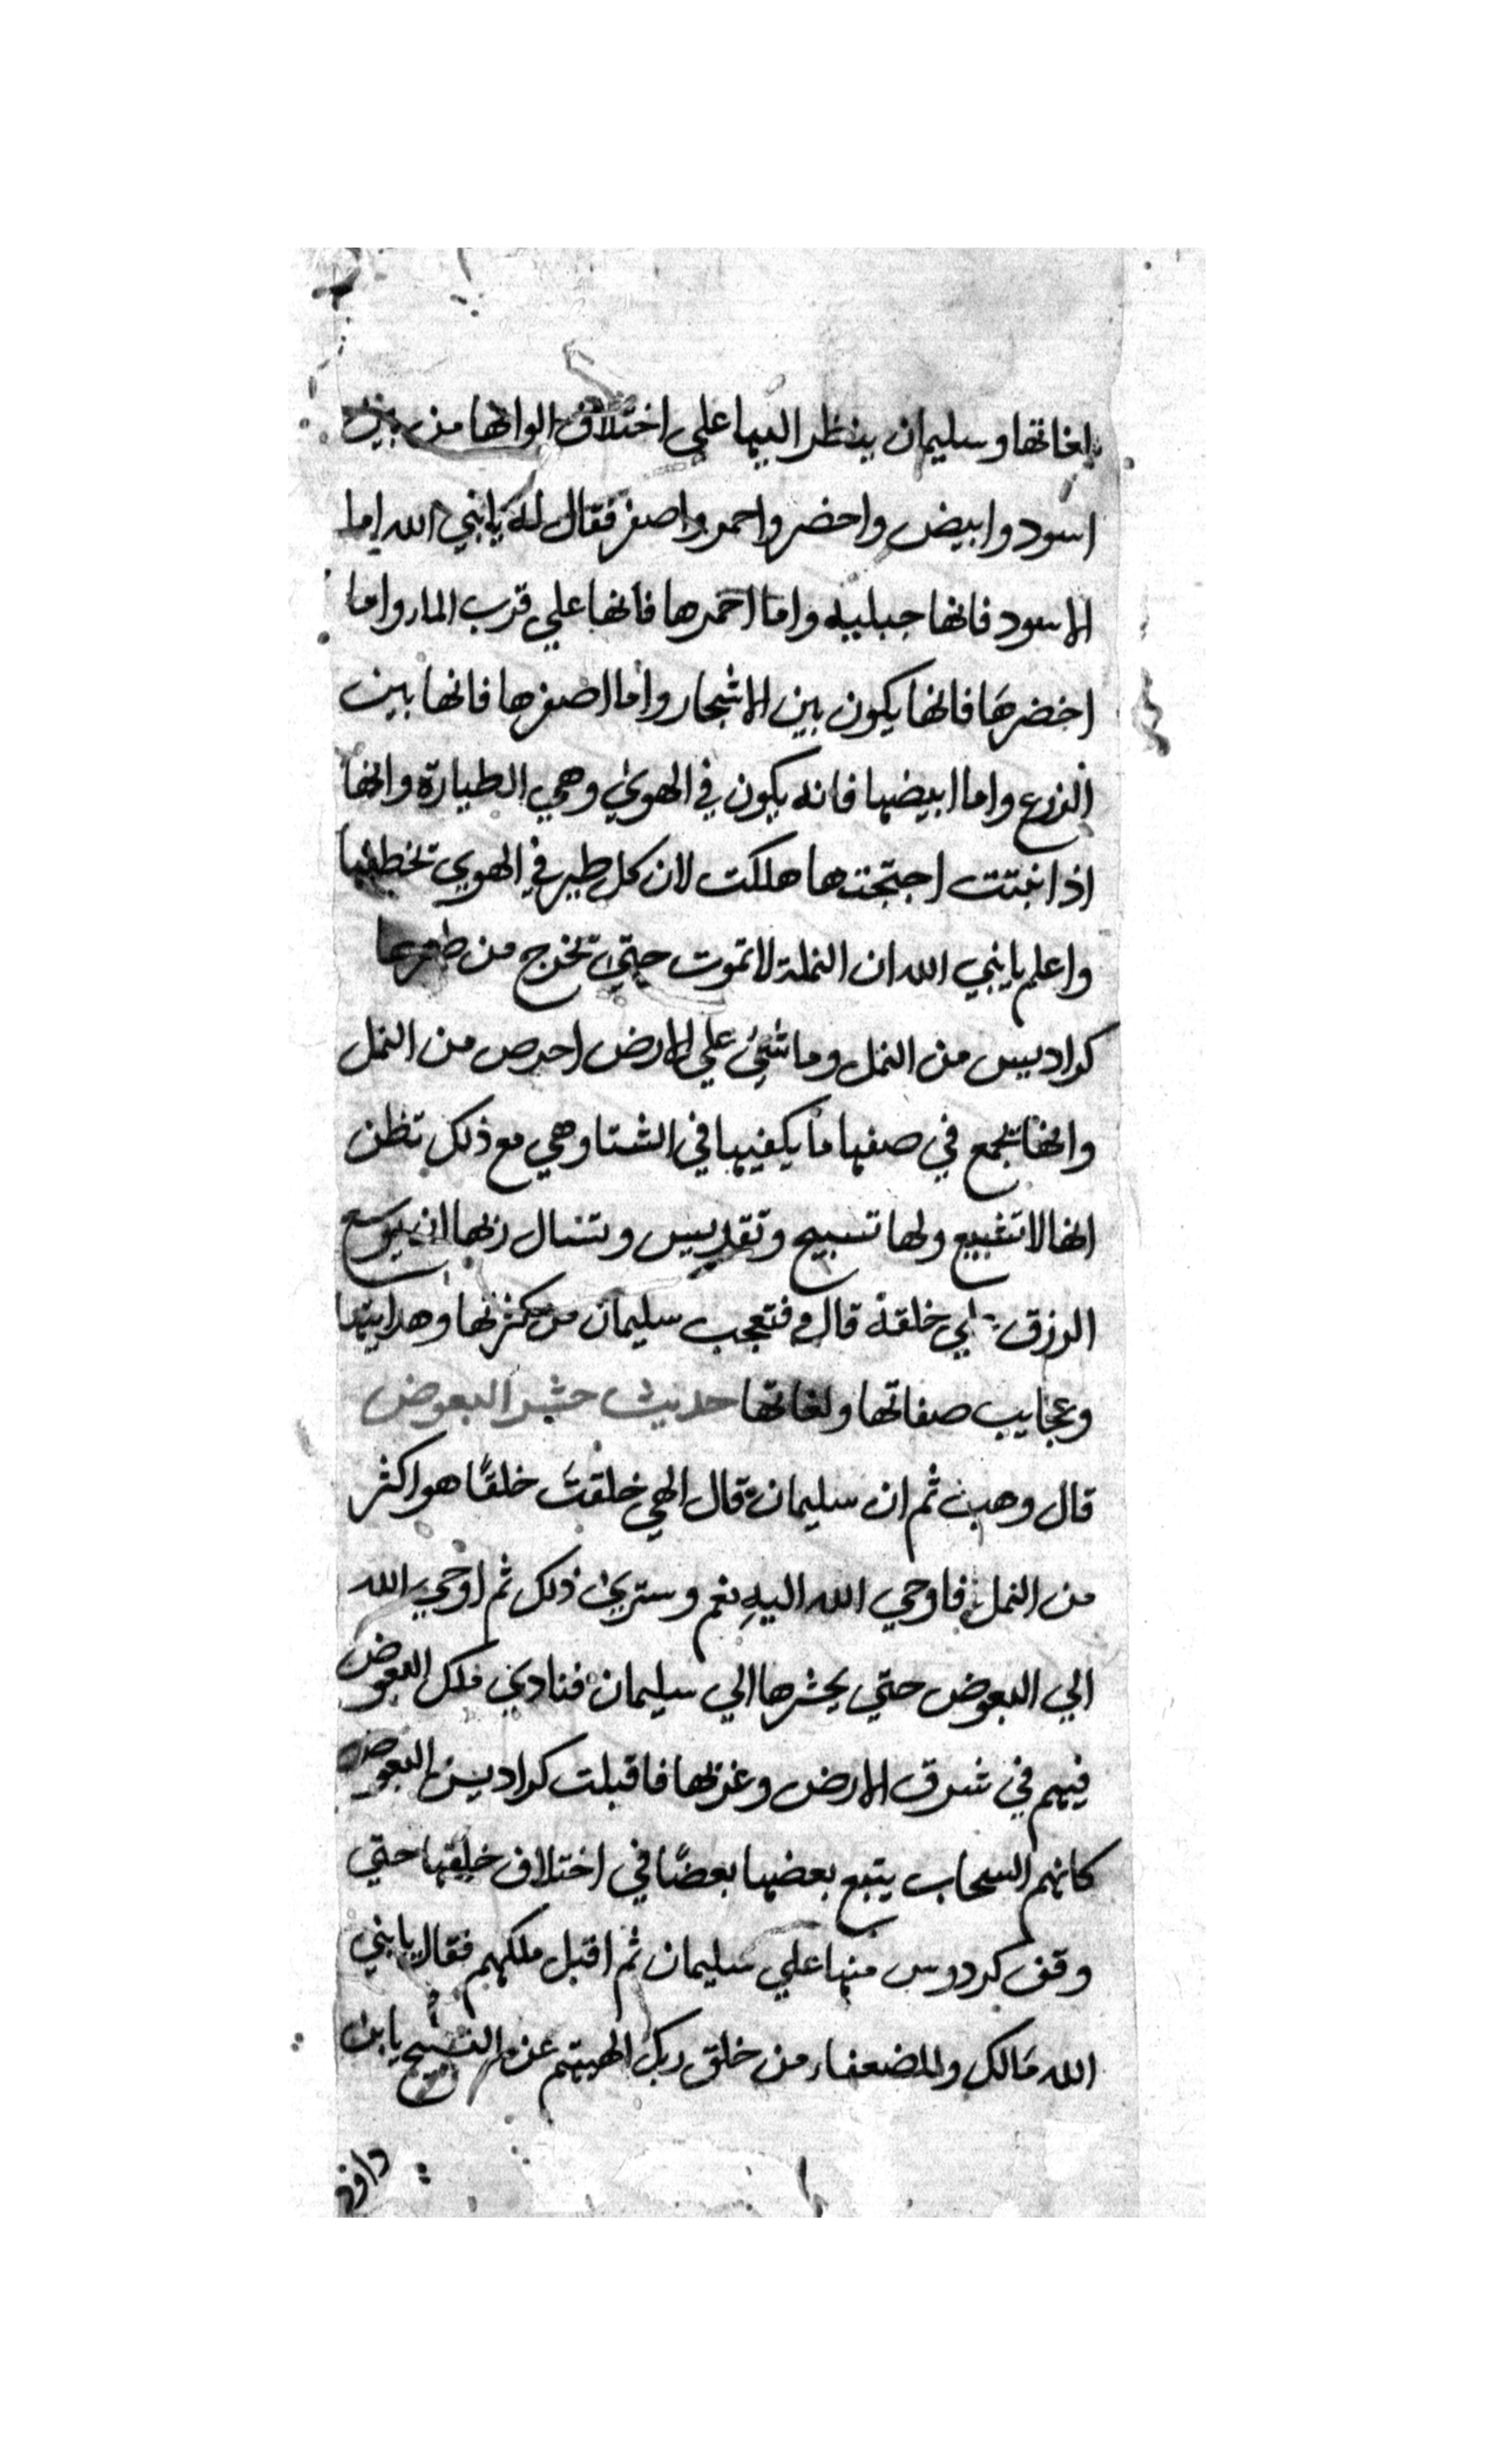 بلغاتها وسليمان ينظر اليها على اختلاف الوانها من بين
اسود وابيض واخضر واحمر واصفر فقال له يانبي الله اما
الاسود فانها جبليه واما احمرها فانها علي قرب الماء واما
اخضرها فانها يكون بين الاشجار واما اصفرها فانها بين
الزرع واما ابيضها فانه يكون في الهوي وهي الطيارة وانها
اذا نبتت اجنحتها هلكت لان كل طير في الهوي تخطفها
واعلم يانبي الله ان النملة لا تموت حتي تخرج من ظهرها
كراديس من النمل وما شيء علي الارض احرص من النمل
وانها تجمع في صفها ما يكفيها في الشتا وهي مع ذلك تظن
انها لا تشبع ولها تسبيح وتقديس وتسال ربها ان يوسع
الرزق علي خلقه قال فتعجب سليمان من كثرتها وهدايتها
وعجايب صفاتها ولغاتها حديث حشر البعوض
قال وهب ثم ان سليمان قال الهي خلقت خلقًا هو اكثر
من النمل فاوحي الله اليه نعم وستري ذلك ثم اوحي الله
الي البعوض حتي يحشرها الي سليمان فنادي ملك البعوض
فيهم في شرق الارض وغربها فاقبلت كراديس البعوض
كانهم السحاب يتبع بعضها بعضًا في اختلاف خلقها حتي
وقف كردوس منها علي سليمان ثم اقبل ملكهم فقال يانبي
الله مالك والضعفاء من خلق ربك الهيتهم عن التسبيح يابن
داود